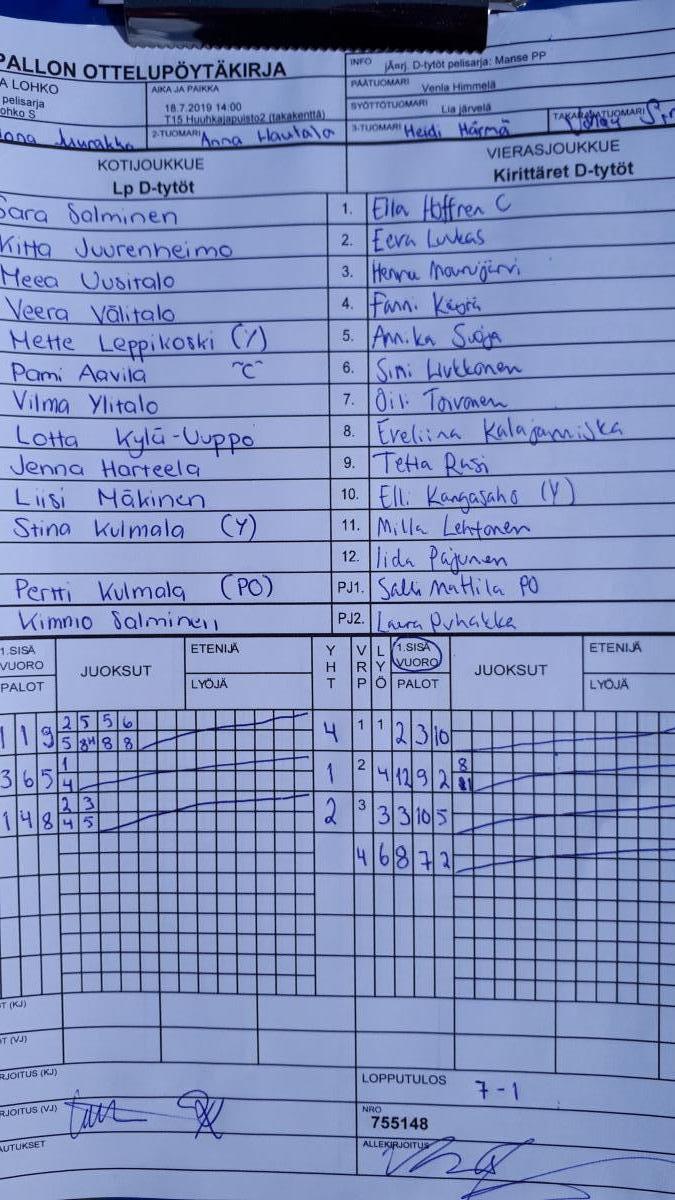 PALLON OTTELUPÖYTÄKIRJA
INFO jÄrj. D-tytöt pelisarja: Manse PP
A LOHKO
pelisarja
ohko S
AIKA JA PAIKKA
18.7.2019 14:00
T15 Huuhkajapuisto2 (takakenttä)
PÄÄTUOMARI Venla Himmelä
SYÖTTÖTUOMARI Lia järvelä
2-TUOMARI Anna Hautala
3-TUOMARI Heidi Härmä
KOTIJOUKKUE
Lp D-tytöt
VIERASJOUKKUE
Kirittäret D-tytöt
Sara Salminen 1. Ella Hoffren C
Kitta Juurenheimo 2. Eeva Luukas
Meea Uusitalo 3. Henna Mourujärvi
Veera Välitalo 4. Fanni Käyrä
Mette Leppikoski (Y) 5. Annika Suoja
Pami Aavila "C" 6. Sini Liukkonen
Vilma Ylitalo 7. Oili Toivonen
Lotta Kylä-Uuppo 8. Eveliina Kalajanniska
Jenna Harteela 9. Tetta Rusi
Liisi Mäkinen 10. Elli Kangasaho (Y)
Stina Kulmala (Y) 11. Milla Lehtonen
12. Iida Pajunen
Pertti Kulmala (PO) PJ1. Salli Mattila PO
Kimmo Salminen PJ2. Laura Puhakka
1.SISÄ VUORO PALOT JUOKSUT ETENIJÄ LYÖJÄ YHT VRP LYÖ 1.SISÄ VUORO PALOT JUOKSUT ETENIJÄ LYÖJÄ
1 1 9 2 5 5 6 4 1 1 2 3 10
5 8 8 8
3 6 5 1 1 2 4 12 9 2 8
4 11
1 4 8 2 3 2 3 3 3 10 5
4 5
4 6 8 7 2
T (KJ)
T (VJ)
RJOITUS (KJ)
LOPPUTULOS 7-1
RJOITUS (VJ)
NRO
755148
AUTUKSET
ALLEKIRJOITUS